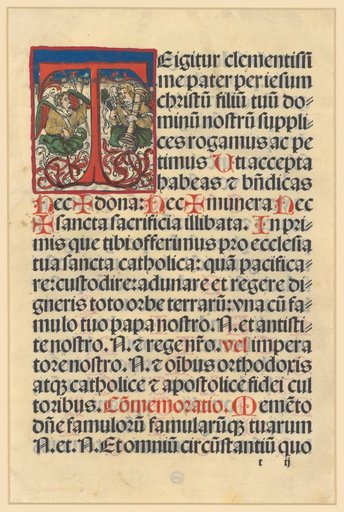 TEigitur clementissi
me pater per iesum
christū filiū tuū do⸗
minū nostrū suppli⸗
ces rogamus ac pe
timus Uti accepta
habeas ⁊ bn̄dicas
hec ✠ dona: hec ✠ munera hec
✠ sancta sacrificia illibata. In pri⸗
mis que tibi offerimus pro ecclesia
tua sancta catholica: quā pacifica⸗
re: custodire: adunare et regere di⸗
gneris toto orbe terrarū: vna cū fa⸗
mulo tuo papa nostro. N. et antisti⸗
te nostro. N. ⁊ rege nr̄o. vel impera
tore nostro. N. ⁊ oībus orthodoxis
atqꝫ catholice ⁊ apostolice fidei cul
toribus. Cōmemoratio. Memēto
dn̄e famulorū famularūqꝫ tuarum
N. et. N. Et omniū circūstantiū quo